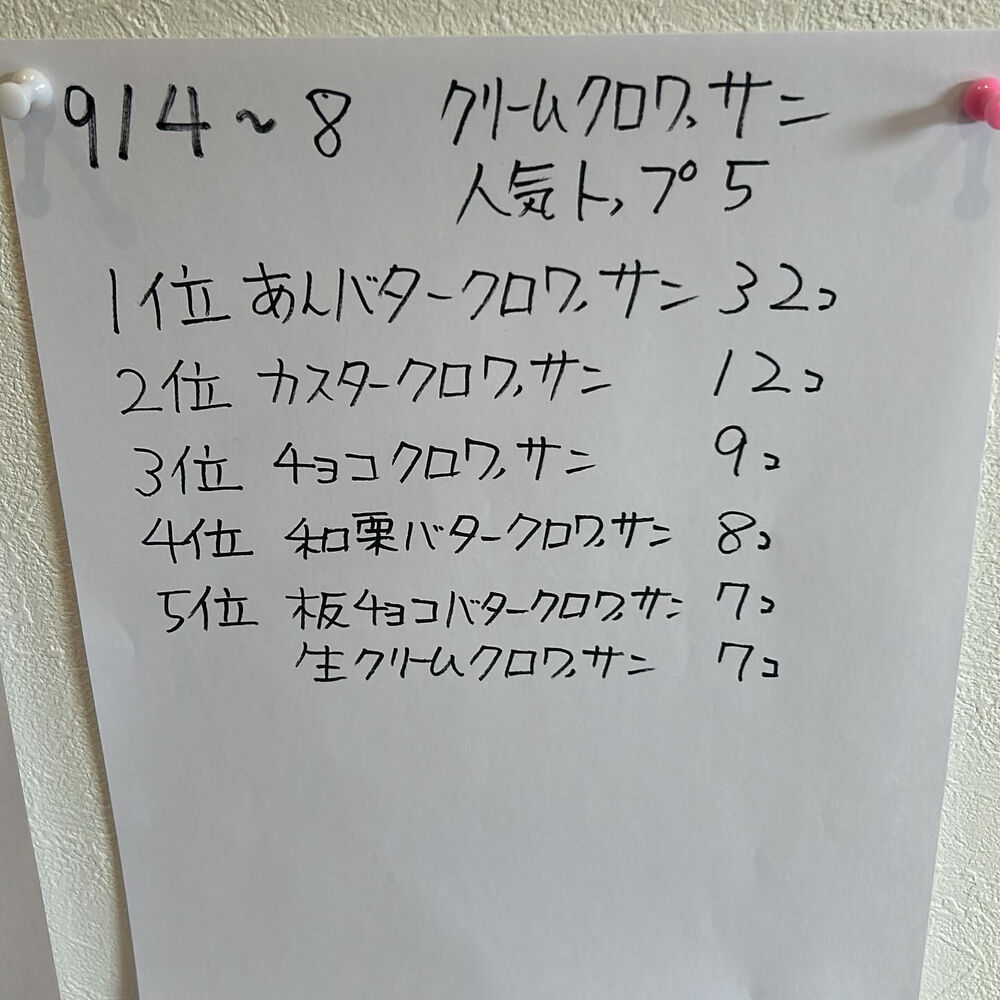 9/4～8 クリームクロワッサン
人気トップ5
1位 あんバタークロワッサン 32コ
2位 カスタークロワッサン 12コ
3位 チョコクロワッサン 9コ
4位 和栗バタークロワッサン 8コ
5位 板チョコバタークロワッサン 7コ
生クリームクロワッサン 7コ